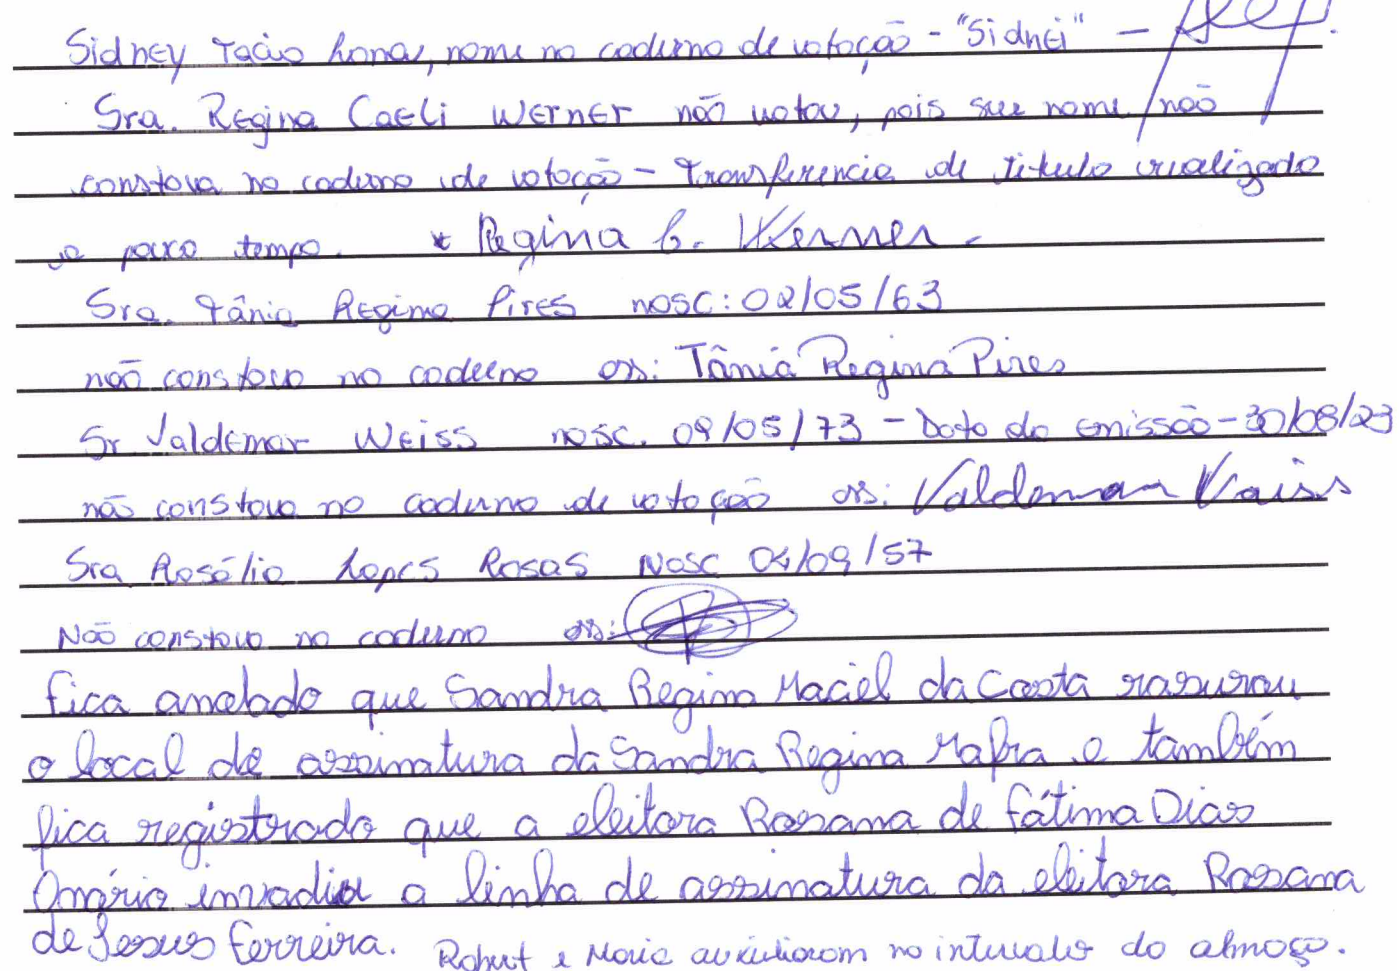 Sidney Tacio Lona, nome no caderno de votação - "Sidnei" -
Sra. Regina Caeli Werner não votou, pois seu nome não
constava no caderno de votação - Transferencia de titulo realizado
a pouco tempo. * Regina C. Werner.
Sra. Tânia Regina Pires nasc: 02/05/63
não constava no caderno ass: Tânia Regina Pires
Sr. Valdemar Weiss nasc. 09/05/73 - Data da emissão - 30/08/23
não constava no caderno de votação ass: Valdemar Vaiss
Sra Rosélia Lopes Rosas Nasc 04/09/57
Não constava no caderno ass:
Fica anotado que Sandra Regina Maciel da Costa rasurou
o local de assinatura da Sandra Regina Mafra e também
fica registrado que a eleitora Rosana de Fátima Dias
Onório invadiu a linha de assinatura da eleitora Rosana
de Jesus Ferreira. Robert e Maria auxiliaram no intervalo do almoço.